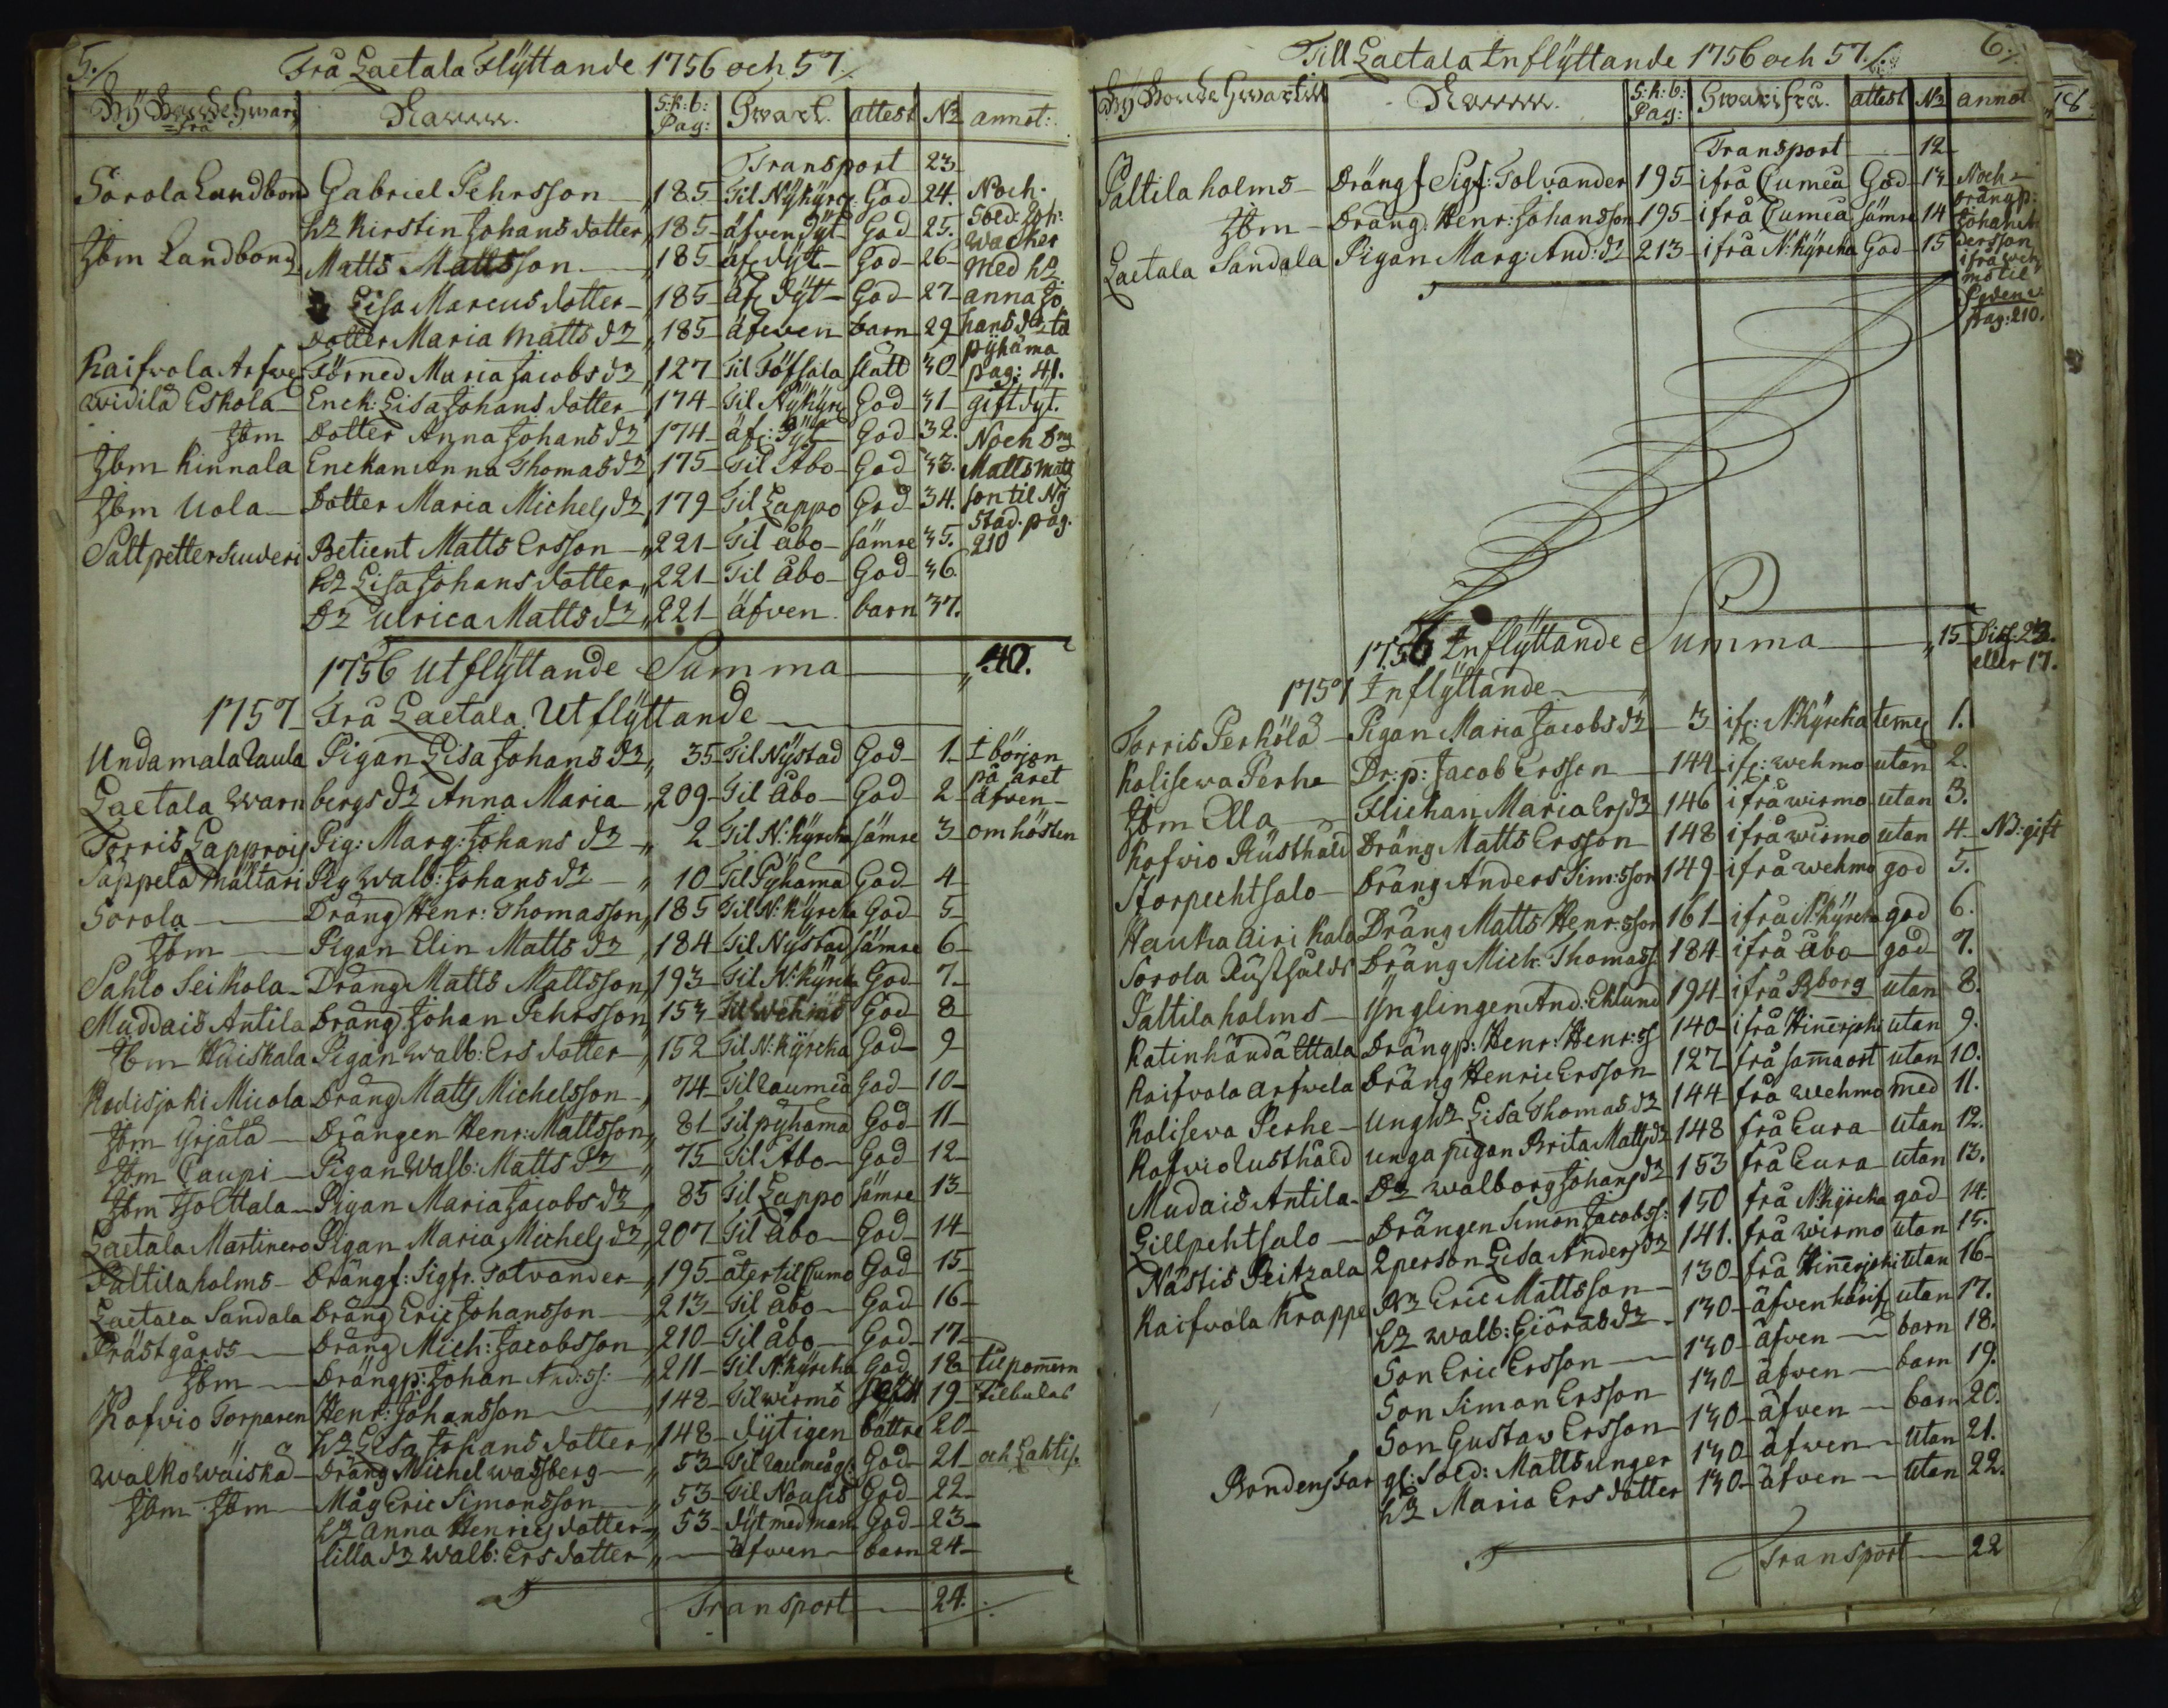 5./
Frå Laetala Flÿttande 1756 och 57./
Bÿ Bonde Hwars frå Namn. S:k:b: Pag: Hwart. attest No annot:
Transport 23
Sorola Landbond Gabriel Pehrsson 185 Til Nÿkÿrc: God 24. Noch
hr Kirstin Johans dotter 185 äfven dÿt God 25. Sold: Joh:
Jbm Landbond Matts Mattsson 185 äf: dÿt God 26 wacker med hr
Lisa Marcus dotter 185 äf: dÿt God 27 anna Jo
dotter Maria Matts dr 185 äfwen barn 29 hans dr til
Kaifvola Arfwe Förned Maria Jacobs dr 127 Til Töfsala slätt 30 pÿhäma pag: 41.
widilä Eskola Enck: Lisa Johans dotter 174 Til Nÿkÿrc God 31 gift dÿt.
Jbm Dotter Anna Johans dr 174 äf: dÿt God 32. Noch
Jbm Kinnala Enckan Anna Thomas dr 175 Til Åbo God 33. Matts Matts
Jbm Uola Dotter Maria Michels dr 179 Til Lappo God 34. son til Nÿ
Saltpetter siuderi Betient Matts Ersson 221 Til åbo sämre 35. stad. pag. 210
hr Lisa Johans dotter 221 Til åbo God 36.
Dr Ulrica Matts dr 221 äfven barn 37.
1756 utflÿttande Summa 40.
1757 Frå Laetala Utflÿttande
Undamala Laula Pigan Lisa Johans dr 35 Til Nÿstad God 1 I början på året
Laetala Warn bergs dr Anna Maria 209 Til åbo God 2 äfven
Torris Lapprois Pig: Marg: Johans dr 2 Til N: kÿrcka sämre 3 om hösten
Sappela Mältäri Pig Walb: Johans dr 10 Til Pÿhämä God 4
Sorola Dräng Henr: Thomasson 185 Til N: kÿrcka God 5
Jbm Pigan Elin Matts dr 184 Til Nÿstad sämre 6
Sahlo Seikola Dräng Matts Mattsson 193 Til N: kÿrcka God 7
Muddais Antila Dräng Johan Pehrsson 153 Til Wehmo God 8
Jbm Huiskala Pigan Walb: Ers dotter 152 Til N: kÿrcka God 9
Kodisjoki Micola Dräng Matts Michelsson 74 Til Raumeå God 10
Jbm Grjälä Drängen Henr: Mattsson 81 Til pÿhämä God 11
Jbm Caupi Pigan Walb: Matts dr 75 Til Åbo God 12
Jbm Iso Ettala Pigan Maria Jacobs dr 85 Til Lappo sämre 13
Laetala Martinero Pigan Maria Michels dr 207 Til åbo God 14
Paltila holms Drängf: Sigfr. Tolvander 195 åter til Cumo God 15
Laetala Sandala Dräng Eric Johansson 213 Til åbo God 16
Prästgårds Dräng Mich: Jacobsson 210 Til åbo God 17
Jbm Drängp: Johan And: ss: 211 Til N: kÿrcka God 18 til pomern
Kofvio Torparen Henr: Johansson 148 Til wirmo 19
hr Lisa Johans dotter 148 dÿt igen bättre 20
Walko Wäiskä Dräng Michel Wassberg 53 Til Raumeå God 21 och Lahtis.
Jbm Jbm Måg Eric Simonsson 53 Til Nousis God 22
hr Anna Henrics dotter 53 dÿt med man God 23
lilla dr Walb: Ers dotter äfwen barn 24
Transport 24.
6./
Till Laetala Inflÿttande 1756 och 57./.
Bÿ Bonde Hwartill Namn. S:k:b: Pag: Hwarifrå. attest No annot
Transport 12
Paltila holms Drängf Sigf: Tolvander 195 ifrå Cumeå God 13 Noch
Jbm Dräng: Henr: Johansson 195 ifrå Cumeå sämre 14 drängp: Johan
Laetala Sandala Pigan Marg: And: dr 213 ifrå N: kÿrcka God 15 dersson ifrå weh mo til
pag: 210.
1756 Inflÿttande Summa 15 Diff: 23. eller 17.
1757 Inflÿttande
Torris Perhölä Pigan Maria Jacobs dr 3 if: N: Kÿrcka 1.
Kolisewa Perhe Dr: p: Jacob Ersson 144 if: wehmo utan 2.
Jbm Ella Flickan Maria Ers dr 146 ifrå wirmo utan 3.
Kofwio Rusthåld Dräng Matts Ersson 148 ifrå wirmo utan 4 NB: gift
Storpechtsalo Dräng Anders Sim: sson 149 ifrå wehmo god 5.
Hauka Airikala Dräng Matts Henr: sson 161 ifrå N: kÿrcka god 6.
Sorola Rusthålds Dräng Mich: Thomass: 184 ifrå åbo god 7.
Paltila holms Ÿnglingen And: Eklund 194 ifrå Bborg utan 8.
Katinhändä Ettala Drängp: Henr: Henr: ss 140 ifrå Hinerjoki utan 9.
Kaifvola Arfwela Dräng Henric Ersson 127 frå samma ort utan 10.
Kolisewa Perhe Ung hr Lisa Thomas dr 144 frå wehmo med 11.
Kofvio Rusthåld unga pigan Brita Matts dr 148 frå Eura utan 12.
Mudais Antila Dr Walborg Johans dr 153 frå Eura utan 13.
Lillpehtsalo Drängen Simon Jacobss: 150 frå N: kÿrcka god 14.
Nästis Peitzala Qperson Lisa Anders dr 141. frå wirmo utan 15.
Kaifwola Krappe Nr Eric Mattsson 130 frå Hinerjoki utan 16
hr Walb: Giörans dr 130 äfven härif utan 17.
Son Eric Ersson 130 äfven barn 18.
Son Simon Ersson 130 äfven barn 19.
Son Gustaw Ersson 130 äfven barn 20.
Bondens Far gl: Sold: Matts unger 130 äfwen utan 21.
hr Maria Ers dotter 130 äfwen utan 22.
Transport 22